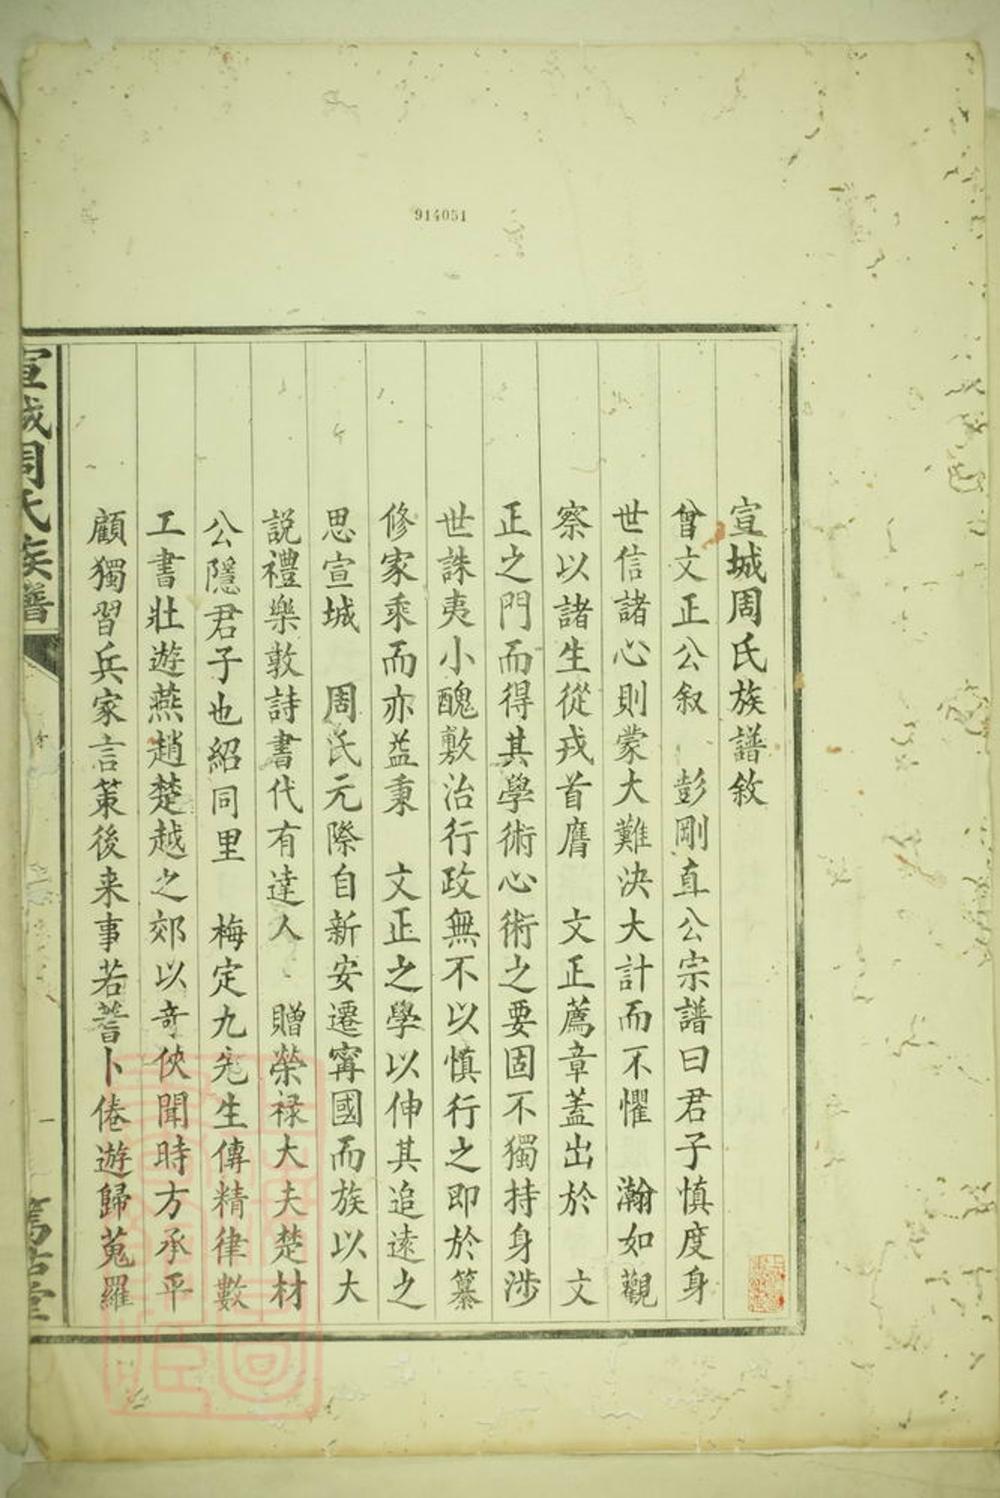 914051
宣城周氏族譜敘
曾文正公叙　彭剛直公宗譜曰君子慎度身
世信諸心則蒙大難決大計而不懼　瀚如觀
察以諸生從戎首膺　文正薦章蓋出於　文
正之門而得其學術心術之要固不獨持身涉
世誅夷小醜敷治行政無不以慎行之即於纂
修家乘而亦益秉　文正之學以伸其追遠之
思宣城　周氏元際自新安遷甯國而族以大
説禮樂敦詩書代有達人　贈榮禄大夫楚材
公隱君子也紹同里　梅定九先生傳精律數
工書壯遊燕趙楚越之郊以竒俠聞時方承平
顧獨習兵家言策後来事若蓍卜倦遊歸蒐羅
宣城周氏族譜
一